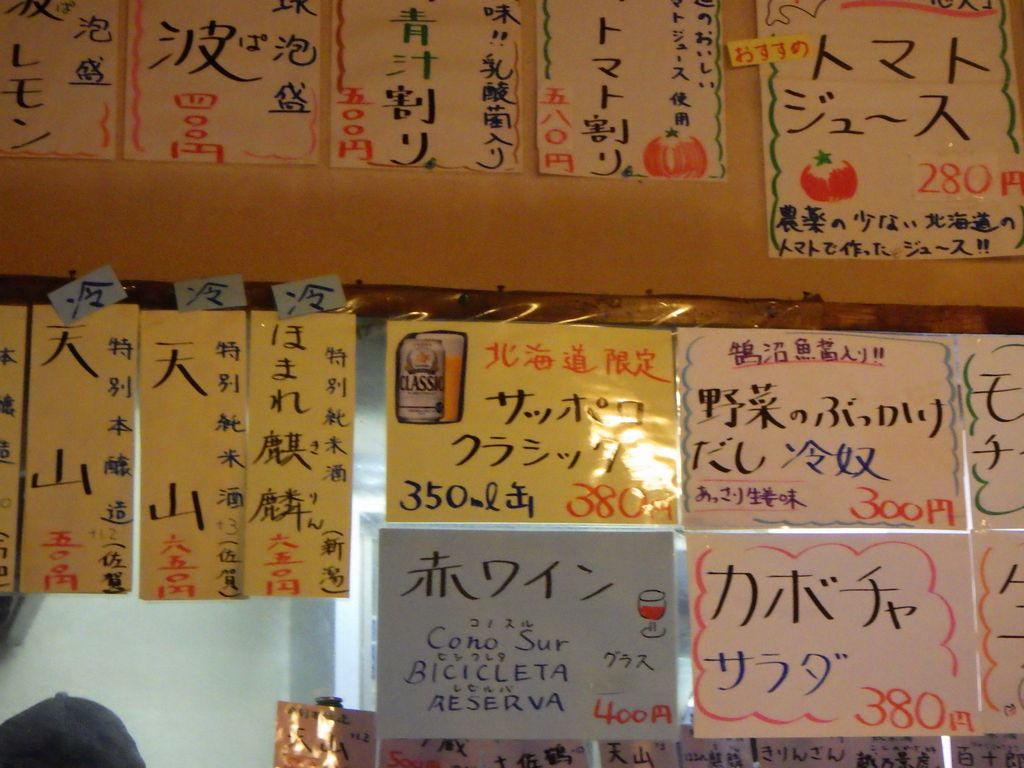 泡盛
レモン
泡盛
波
ぱ
四〇〇円
味!!乳酸菌入り
青汁割り
五〇〇円
のおいしい
マトジュース使用
トマト割り
五八〇円
おすすめ
トマト
ジュース
280円
農薬の少ない北海道の
トマトで作ったジュース!!
冷
特別本醸造
+12
(佐賀)
天山
五五〇円
冷
特別純米酒
+3
(佐賀)
天山
六五〇円
冷
特別純米酒
(新潟)
ほまれ麒麟
きりん
六五〇円
CLASSIC
北海道限定
サッポロ
クラシック
350ml缶
380円
鵠沼魚醤入り!!
野菜のぶっかけ
だし冷奴
あっさり生姜味
300円
モ
チ
赤ワイン
コノスル
Cono Sur
ビシクレタ
BICICLETA
レセルバ
RESERVA
グラス
400円
カボチャ
サラダ
380円
天山
佐鶴
天山
きりんざん
越乃景虎
百十郎